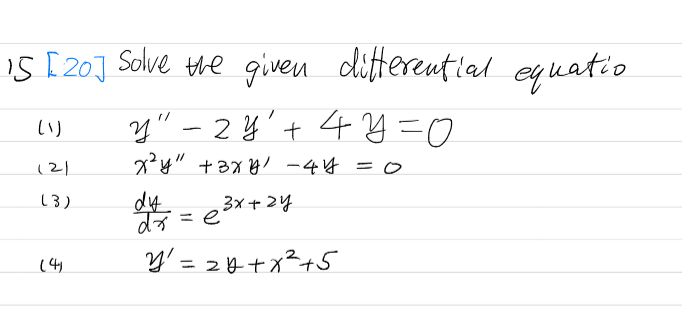 15 [20] Solve the given differential equatio
(1) y'' - 2y' + 4y = 0
(2) x²y'' + 3xy' - 4y = 0
(3) dy/dx = e^{3x+2y}
(4) y' = 2y + x² + 5